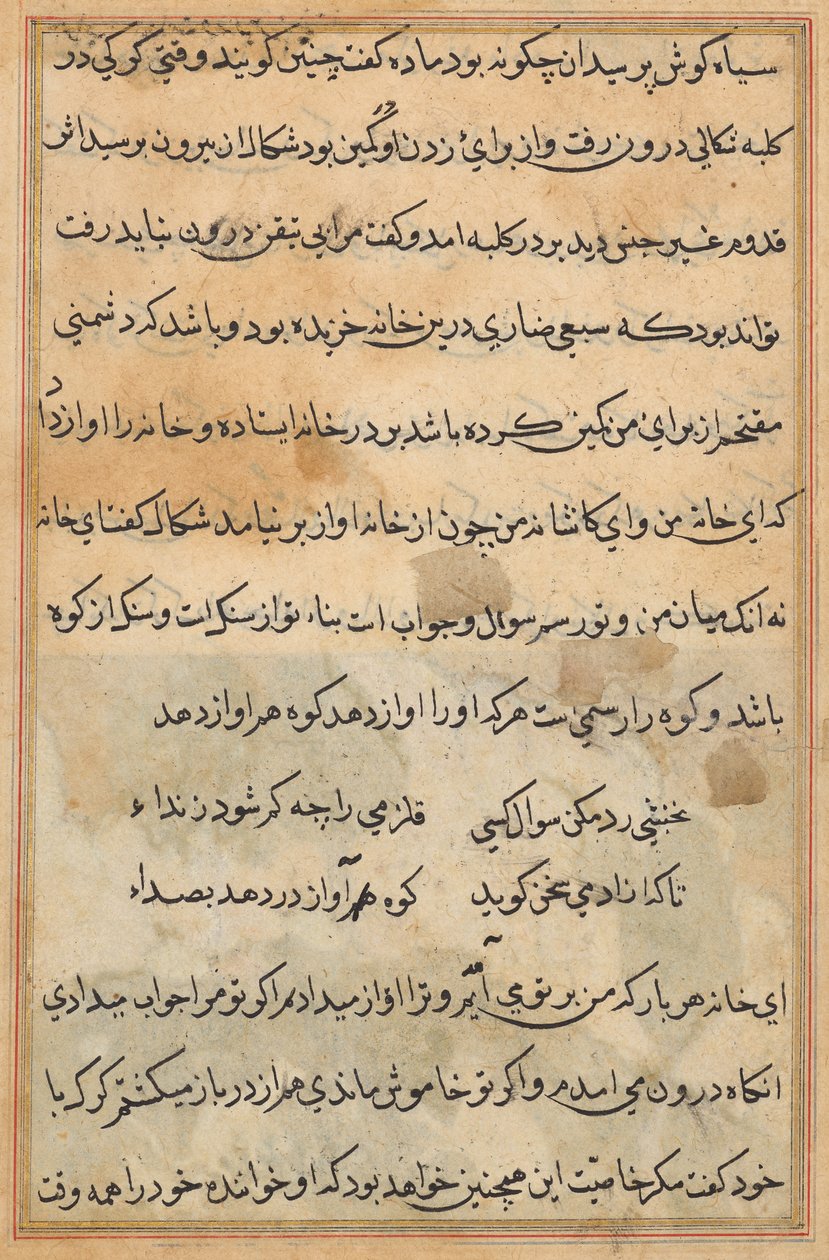 سیاه کوش پرسید ان چکونه بود ماده کفت چنین کویند وقتی کرکی در
کلبه شکالی درون رفت و از برای زدن او کمین بود شکال از بیرون برسید اش
قدوم غیر جنس دید بر در کلبه امد و کفت مرا بی تیقن درون نباید رفت
تواند بود که سبعی ضاری درین خانه خزیده بود و باشد که دشمنی
مقتحم از برای من کمین کرده باشد بر در خانه ایستاده و خانه را اواز داد
که ای خانه من و ای کاشانه من چون از خانه اواز بر نیامد شکال کفت ای خانه
نه انک میان من و تو رسم سوال و جواب است بناء تو از سنک است و سنک از کوه
باشد و کوه را رسمی ست هر که او را اواز دهد کوه هم اواز دهد
نخشبی رد مکن سوال کسی قلزمی را چه کم شود ز نداء
تا که از ادمی سخن کوید کوه هم آواز در دهد بصداء
ای خانه هر بار که من بر تو می آیم و ترا اواز میدادم اکر تو مرا جواب میدادی
انکاه درون می امدم و اکر تو خاموش ماندی هم از در باز میکشتم کرک با
خود کفت مکر خاصیت این همچنین خواهد بود که او خواننده خود را همه وقت